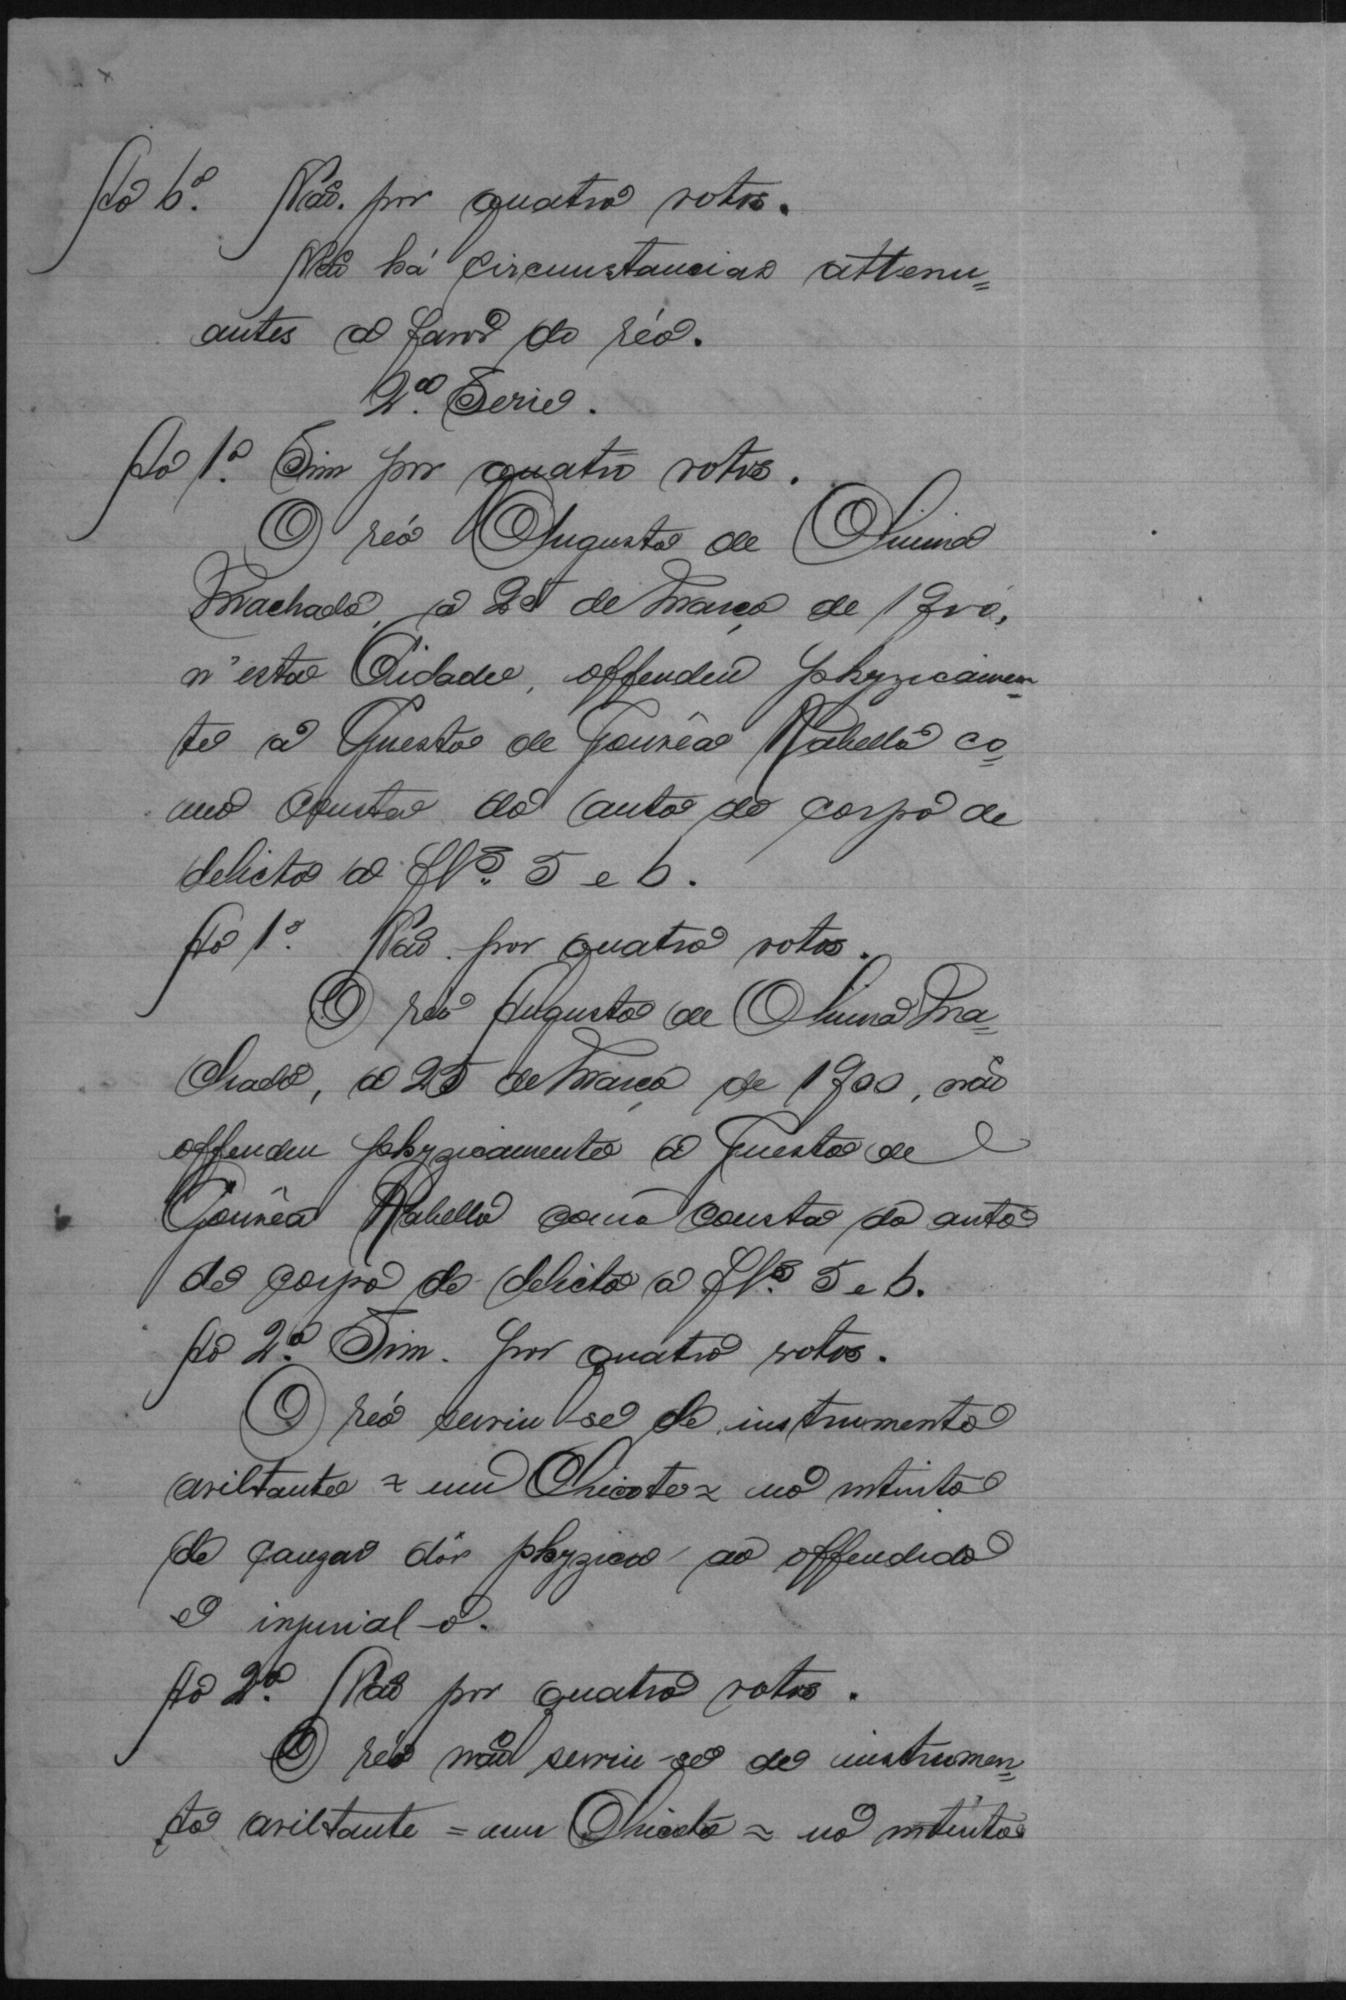 Ao 6º. Não. por quatro votos.
Não há circumstancias attenu=
antes a favor do réo.
2ª. Serie.
Ao 1º. Sim por quatro votos.
O réo Augusto de Oliveira
Machado, a 25 de Março de 1900,
n'esta Cidade, offendeu phyzicamen=
te a de Gouvêa Rabello co=
mo consta do auto de corpo de
delicto a fls. 5 e 6.
Ao 1º. Não. por quatro votos.
O réo Augusto de Oliveira Ma=
chado, a 25 de Março de 1900, não
offendeu phyzicamente a de
Gouvêa Rabello como consta do auto
de corpo de delicto a fls. 5 e 6.
Ao 2º. Sim. por quatro votos.
O réo serviu-se de instrumento
aviltante = um Chicote = no intuito
de cauzar dôr phyzica ao offendido
e injurial-o.
Ao 2º. Não por quatro votos.
O réo não serviu-se de instrumen=
to aviltante = um Chicote = no intuito